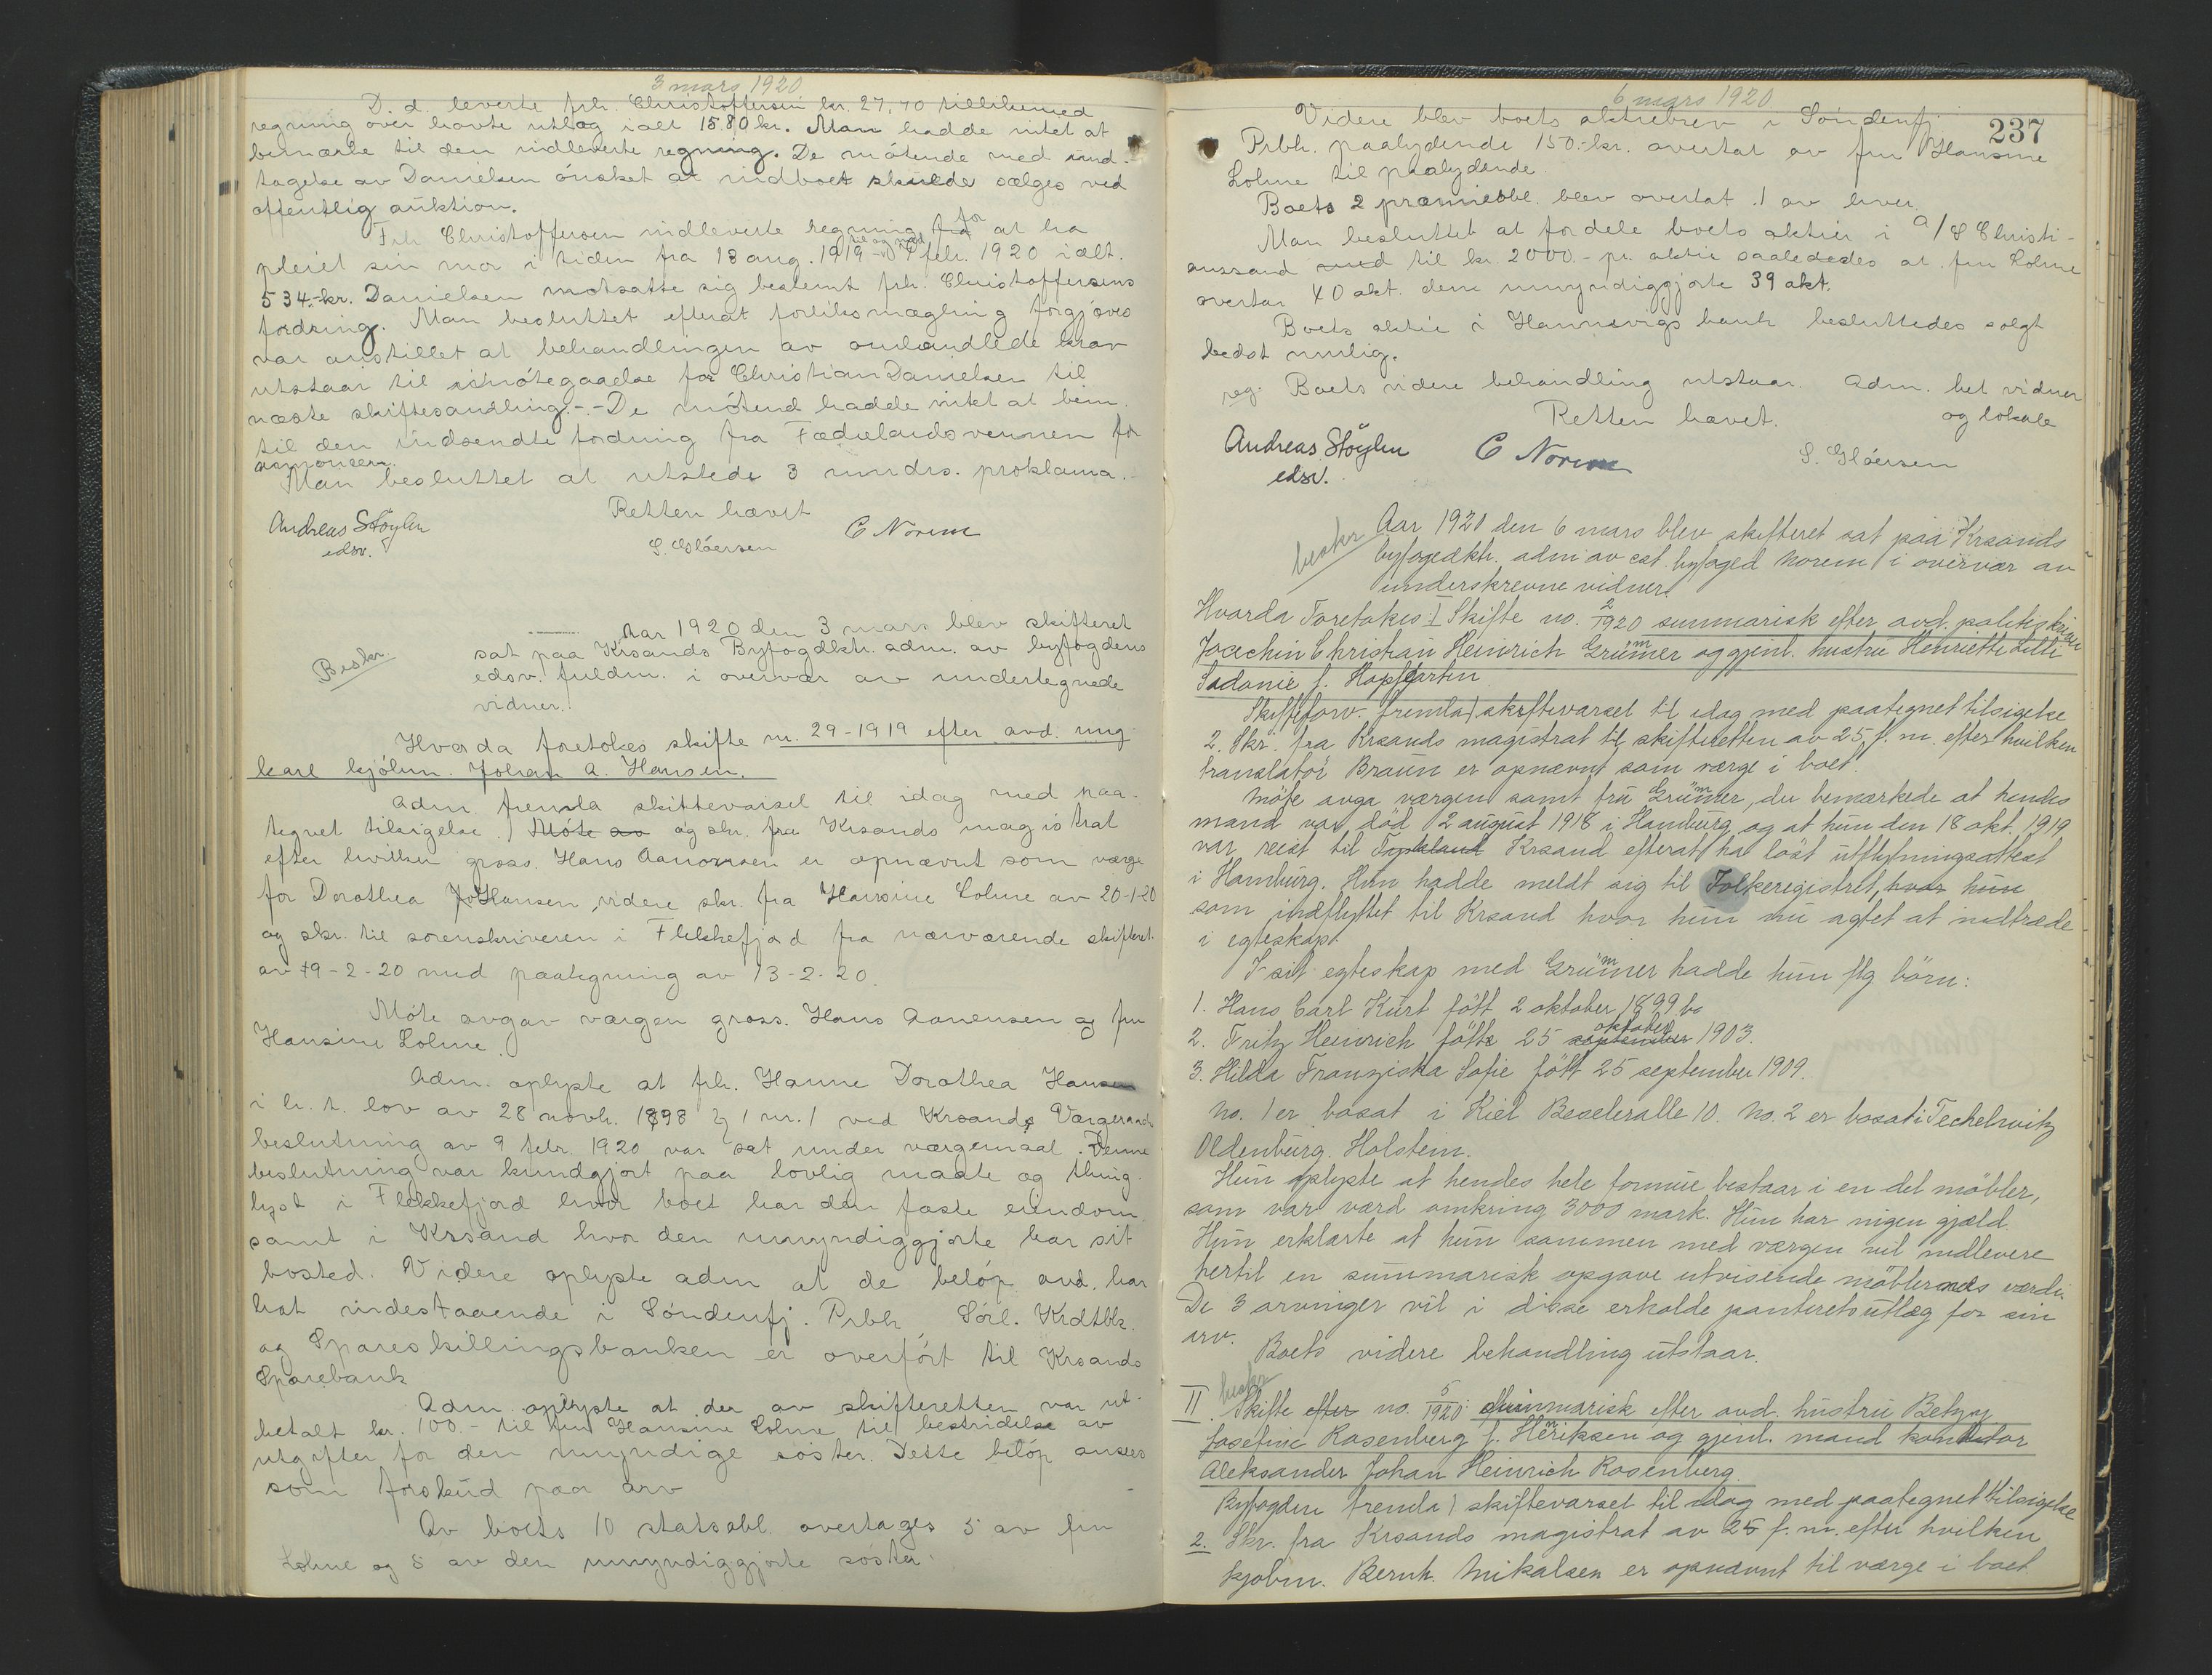 3 mars 1920
D. d. leverte frk. Christoffersen kr. 27,40 tillikemed
regning over havte utlæg ialt 15,80 kr. Man hadde intet at
bemærke til den indleverte regning. De møtende med und-
tagelse av Danielsen ønsket at indboet skulde sælges ved
offentlig auktion.
Frk. Christoffersen indleverte regning for at ha
pleiet sin mor i tiden fra 18 aug. 1919 til og med 4 febr. 1920 ialt.
534.-kr. Danielsen motsatte sig bestemt frk. Christoffersens
fordring. Man besluttet efterat forliksmægling forgjæves
var anstillet at behandlingen av omhandlede krav
utstaar til imøtegaaelse for Christian Danielsen til
næste skiftesamling.-.- De møtend hadde intet at bem.
til den indsendte fordring fra Fædrelandsvennen for
annoncen.
Man besluttet at utstede 3 mndrs. proklama.-
Retten hævet
Andreas Støylen
edsv.
S. Gløersen
C Norem
Beskr.
Aar 1920 den 3 mars blev skifteret
sat paa Krsands Byfogdkt. adm. av byfogdens
edsv. fuldm. i overvær av undertegnede
vidner.
Hvorda foretokes skifte nr. 29-1919 efter avd. ung-
karl kjøbm. Johan A. Hansen.
Adm. fremla skiftevarsel til idag med paa-
tegnet tilsigelse. Møte av og skr. fra Krsands magistrat
efter hvilken gross. Hans Aanensen er opnævnt som værge
for Dorothea Hansen, videre skr. fra Hansine Lohne av 20-1-20
og skr. til sorenskriveren i Flekkefjord fra nærværende skifteret
av 9-2-20 med paategning av 13-2-20.
Møte avgav værgen gross. Hans Aanensen og fru
Hansine Lohne.
Adm. oplyste at frk. Hanne Dorothea Hansen
i h. t. lov av 28 novb. 1898 § 1 nr. 1 ved Krsands Værgeraads
beslutning av 9 febr. 1920 var sat under værgemaal. Denne
beslutning var kundgjort paa lovlig maate og thing-
lyst i Flekkefjord hvor boet har den faste eiendom
samt i Krsand hvor den umyndiggjorte har sit
bosted. Videre oplyste adm at de beløp avd. har
hat indestaaende i Søndenfj. Prbk, Sørl. Krdtbk.
og Spareskillingsbanken er overført til Krsands
Sparebank
Adm. oplyste at der av skifteretten var ut-
betalt kr. 100.- til fru Hansine Lohne til bestridelse av
utgifter for den umyndige søster. Dette beløp ansees
som forskud paa arv
Av boets 10 statsobl. overtages 5 av fru
Lohne og 5 av den umyndiggjorte søster.
6 mars 1920
237
Videre blev boets aktiebrev i Søndenfj.
Prbk. paalydende 150.-kr. overtat av fru Hansine
Lohne til paalydende.
Boets 2 præmieobl. blev overtat 1 av hver.
Man besluttet at fordele boets aktier i A/S Christi-
anssand med til kr. 2000.- pr. aktie saaledes at fru Lohne
overtar 40 akt. den umyndiggjorte 39 akt.
Boets aktie i Hannevigs bank besluttedes solgt
bedst mulig.
reg. Boets videre behandling utstaar. Adm. bet vidner
og lokale
Retten hævet.
Andreas Støylen
edsv.
C Norem
S. Gløersen
beskr
Aar 1920 den 6 mars blev skifteret sat paa Krsands
byfogedkt. adm av cst. byfoged Norem i overvær av
underskrevne vidner.
Hvorda Foretokes: I Skifte no. 2/1920 summarisk efter avd. politiskriver
Joachin Christian Heinrich Grümmer og gjenl. hustru Henriette Lilli
Sadonie f. Hopfgarten
Skifteforv. fremla 1 skiftevarsel til idag med paategnet tilsigelse
2. Skr. fra Krsands magistrat til skifteretten av 25 f. m. efter hvilken
translatør Braun er opnævnt som værge i boet.
Møte avga værgen samt fru Grümmer, du bemærkede at hendes
mand var død 12 august 1918 i Hamburg og at hun den 18 okt. 1919
var reist til Krsand efterat ha løst utflytningsattest
i Hamburg. Hun hadde meldt sig til Folkeregistret, hvor hun
som indflyttet til Krsand hvor hun nu agtet at indtræde
i egteskap.
I sit egteskap med Grümmer hadde hun flg børn:
1. Hans Carl Kurt født 2 oktober 1899 bo
2. Fritz Heinrich født 25 september oktober 1903.
3. Hilda Franziska Sofie født 25 september 1909.
No. 1 er bosat i Kiel Beseleralle 10. No. 2 er bosat i Techelwitz
Oldenburg. Holstein.
Hun oplyste at hendes hele formue bestaar i en del møbler,
som var værd omkring 3000 mark. Hun har ingen gjæld.
Hun erklærte at hun sammen med værgen vil indlevere
hertil en summarisk opgave utvisende møblernes værdi.
De 3 arvinger vil i disse erholde panteretsutlæg for sin
arv.
Boets videre behandling utstaar.
beskr
II. Skifte efter no. 5/1920: summarisk efter avd. hustru Betzy
Josefine Rosenberg f. Henriksen og gjenl. mand konditor
Aleksander Johan Heinrich Rosenberg.
Byfogden fremla 1 skiftevarsel til idag med paategnet tilsigelse
2. Skr. fra Krsands magistrat av 25 f. m. efter hvilken
kjøbm. Bernh. Mikalsen er opnævnt til værge i boet